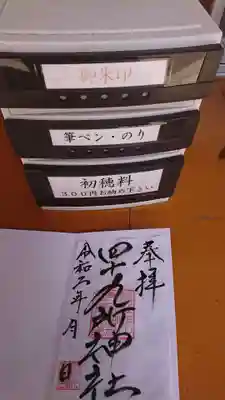 御朱印
筆ペン・のり
初穂料
300円お納め下さい
奉拝
四所神社
令和六年 月 日